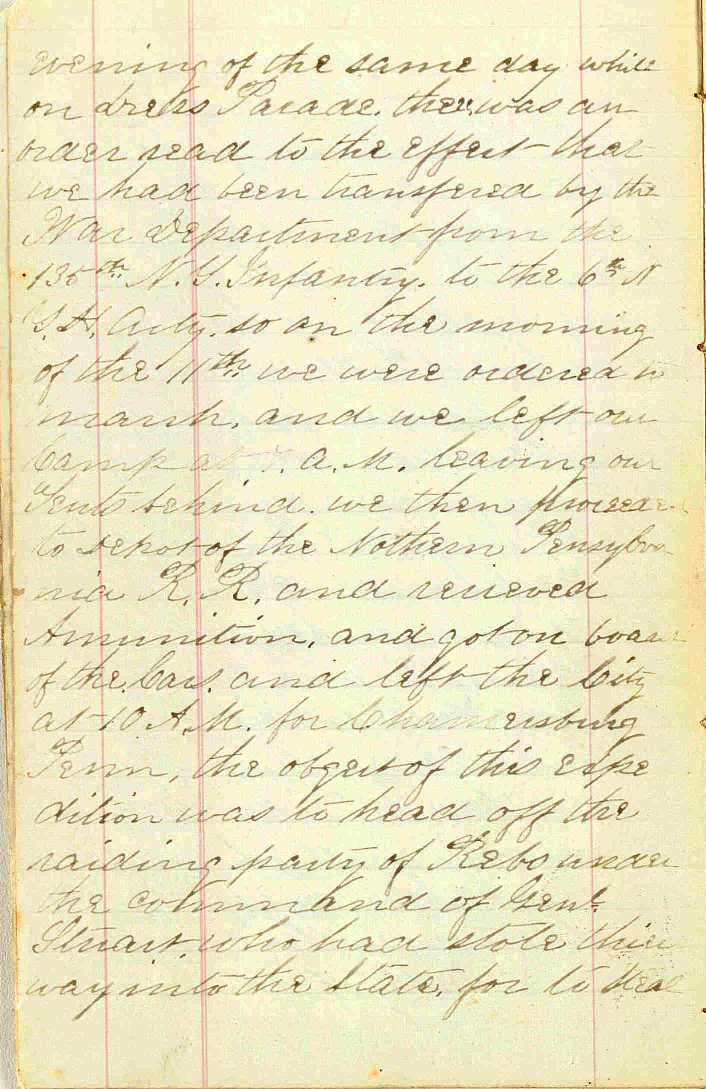 evening of the same day while
on dress Parade. there was an
order read to the effect that
we had been transfered by the
War Department from the
135th N.Y. Infantry. to the 6th N
Y.H. Arty. so on the morning
of the 11th we were ordered to
march, and we left our
Camp at A.M. leaving our
Tents behind. we then proceed
to depot of the Nothern Pensylva
nia R.R. and recieved
Amunition, and got on board
of the Cars. and left the City
at 10 A.M. for Chamersburg
Penn, the obgect of this expe
dition was to head off the
raiding party of Rebs under
the command of Genl.
Stuart, who had stole thier
way into the State, for to steal